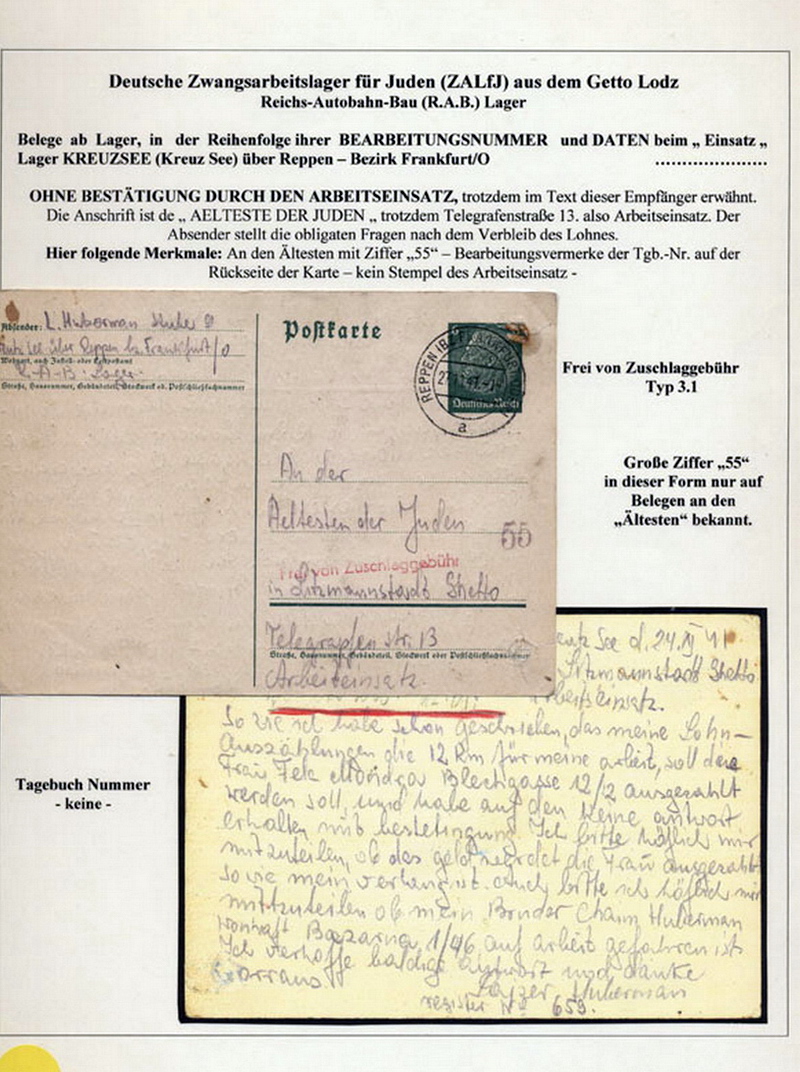 Deutsche Zwangsarbeitslager für Juden (ZALfJ) aus dem Getto Lodz
Reichs-Autobahn-Bau (R.A.B.) Lager
Belege ab Lager, in der Reihenfolge ihrer BEARBEITUNGSNUMMER und DATEN beim „ Einsatz „
Lager KREUZSEE (Kreuz See) über Reppen – Bezirk Frankfurt/O ..................
OHNE BESTÄTIGUNG DURCH DEN ARBEITSEINSATZ, trotzdem im Text dieser Empfänger erwähnt.
Die Anschrift ist de „ AELTESTE DER JUDEN „ trotzdem Telegrafenstraße 13. also Arbeitseinsatz. Der
Absender stellt die obligaten Fragen nach dem Verbleib des Lohnes.
Hier folgende Merkmale: An den Ältesten mit Ziffer „55“ – Bearbeitungsvermerke der Tgb.-Nr. auf der
Rückseite der Karte – kein Stempel des Arbeitseinsatz -
Absender: L. Huberman
über Reppen bz. Frankfurt/O
Wohnort, auch Zustell- oder Leitpostamt
R-A-B. Lager
Straße, Hausnummer, Gebäudeteil, Stockwerk od. Postschließfachnummer
Postkarte
REPPEN
a
Deutsches Reich
An der
Aeltesten der Juden
55
Frei von Zuschlaggebühr
in Litzmannstadt Ghetto
Telegrafen str. 13
Straße, Hausnummer, Gebäudeteil, Stockwerk oder Postschließfachnummer
Arbeitseinsatz.
Frei von Zuschlaggebühr
Typ 3.1
Große Ziffer „55“
in dieser Form nur auf
Belegen an den
„Ältesten“ bekannt.
Tagebuch Nummer
- keine -
See d. 24. XI 41.
Litzmannstadt Ghetto
Arbeitseinsatz.
So wie ich habe schon geschrieben, das meine Lohn-
Auszählungen die 12 Rm für meine arbeit, soll die
Frau Fela Blechgasse 12/2 ausgezahlt
werden soll, und habe auf den keine antwort
erhalten mit bestetingung. Ich bitte höflich mir
mitzuteilen, ob das geld die Frau ausgezahlt
so wie mein verlang ist. auch bitte ich höflich mir
mittzuteilen ob mein Bruder Chaim Huberman
wonhaft Bazarna 1/46 auf arbeit gefahren ist
Ich verhoffe baldige antwort und danke
forraus
Lajzer Huberman
register No 653.